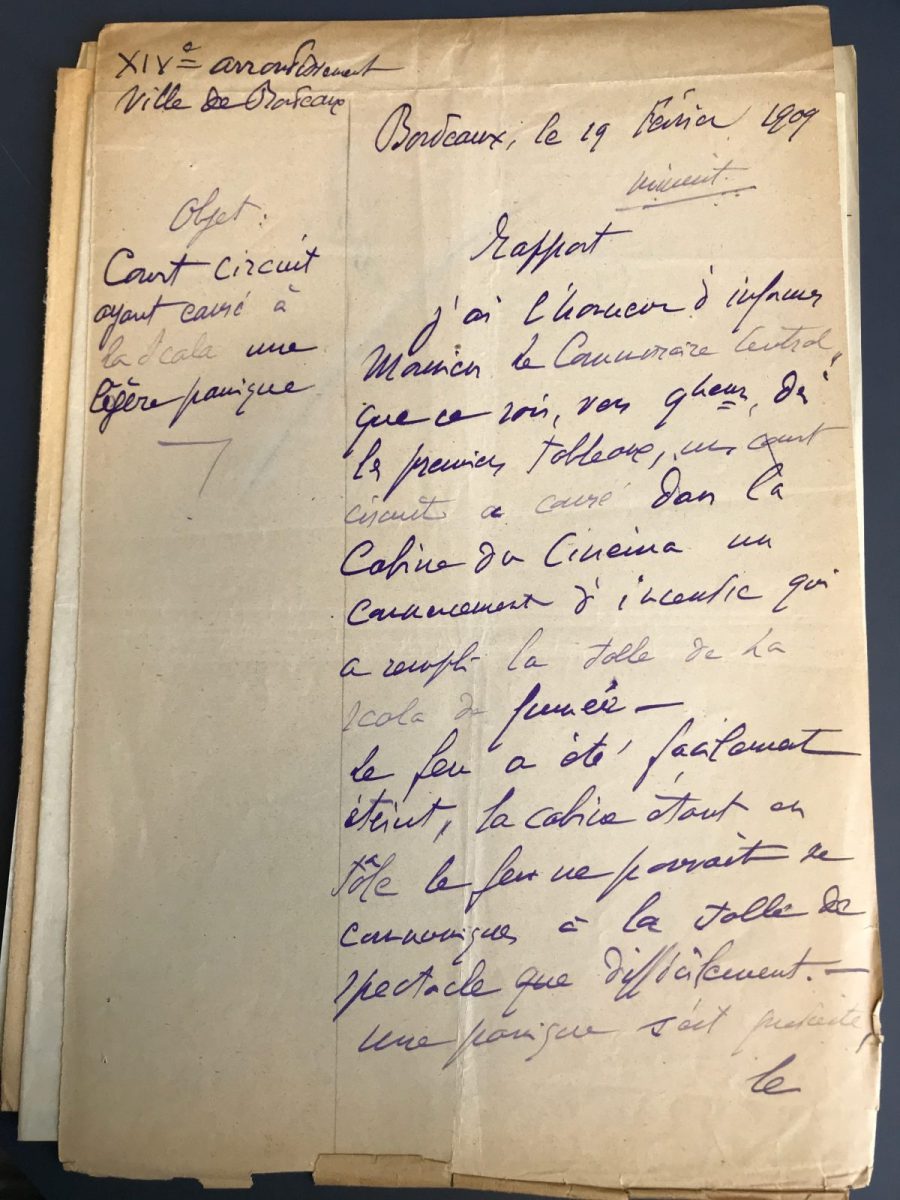 XIVe arrondissement
Ville de Bordeaux
Bordeaux, le 19 Février 1909
Objet:
Court circuit
ayant causé à
la Scala une
légère panique
Rapport
J'ai l'honneur d'informer
Monsieur le Commissaire Central,
que ce soir, vers 9 heures, dès
les premiers tableaux, un court
circuit a causé dans la
Cabine du Cinéma un
commencement d'incendie qui
a rempli la salle de la
Scala de fumée —
le feu a été facilement
éteint, la cabine étant en
tôle le feu ne pouvait se
communiquer à la salle de
spectacle que difficilement. —
Une panique s'est produite,
le